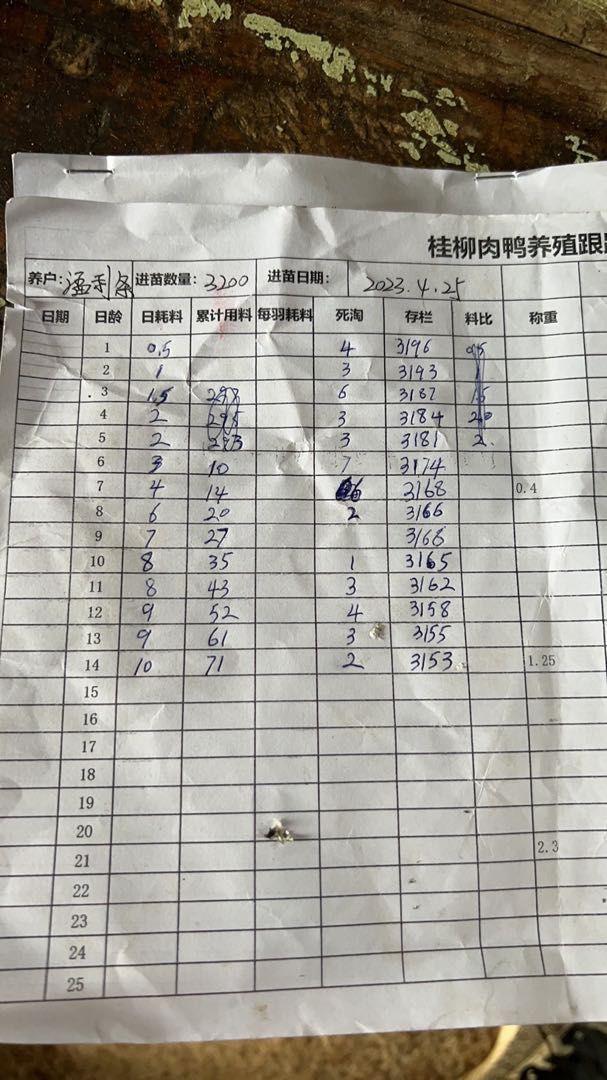 桂柳肉鸭养殖跟
养户: 进苗数量: 3200 进苗日期: 2023.4.25
日期 日龄 日耗料 累计用料 每羽耗料 死淘 存栏 料比 称重
1 0.5 4 3196 0.5
2 1 3 3193 1
3 1.5 298 6 3187 1.5
4 2 295 3 3184 2.0
5 2 293 3 3181 2.
6 3 10 7 3174
7 4 14 6 3168 0.4
8 6 20 2 3166
9 7 27 3166
10 8 35 1 3165
11 8 43 3 3162
12 9 52 4 3158
13 9 61 3 3155
14 10 71 2 3153 1.25
15
16
17
18
19
20
21 2.3
22
23
24
25